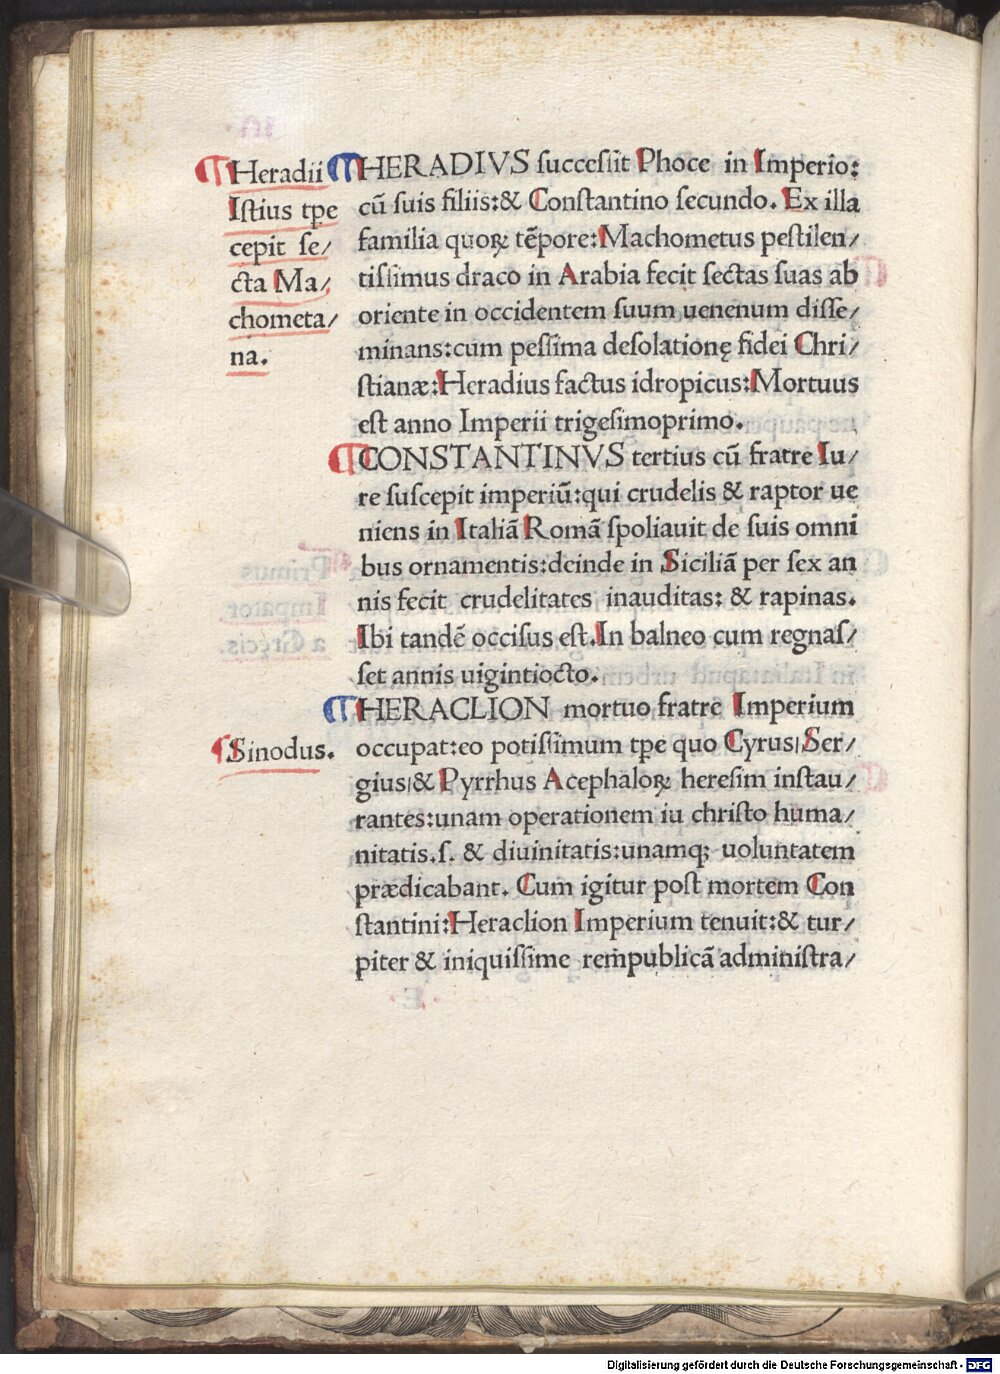 Heradii
Istius tpe
cepit se/
cta Ma/
chometa/
na.
HERADIVS successit Phoce in Imperio:
cū suis filiis:& Constantino secundo. Ex illa
familia quoꝝ tēpore:Machometus pestilen/
tissimus draco in Arabia fecit sectas suas ab
oriente in occidentem suum uenenum disse/
minans:cum pessima desolationę fidei Chri/
stianæ:Heradius factus idropicus:Mortuus
est anno Imperii trigesimoprimo.
CONSTANTINVS tertius cū fratre Iu/
re suscepit imperiū:qui crudelis & raptor ue
niens in Italiā Romā spoliauit de suis omni
bus ornamentis:deinde in Siciliā per sex an
nis fecit crudelitates inauditas: & rapinas.
Ibi tandē occisus est.In balneo cum regnas/
set annis uigintiocto.
HERACLION mortuo fratre Imperium
Sinodus.
occupat:eo potissimum tpe quo Cyrus|Ser/
gius|& Pyrrhus Acephaloꝝ heresim instau/
rantes:unam operationem iu christo huma/
nitatis.s. & diuinitatis:unamq; uoluntatem
prædicabant. Cum igitur post mortem Con
stantini:Heraclion Imperium tenuit:& tur/
piter & iniquissime rempublicā administra/
Digitalisierung gefördert durch die Deutsche Forschungsgemeinschaft - DFG